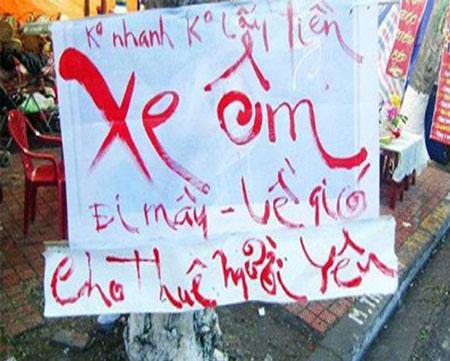 Kº nhanh Kº lấy tiền
Xe ôm
Đi mầy - Về gió
Cho Thuê Người Yêu
M.T